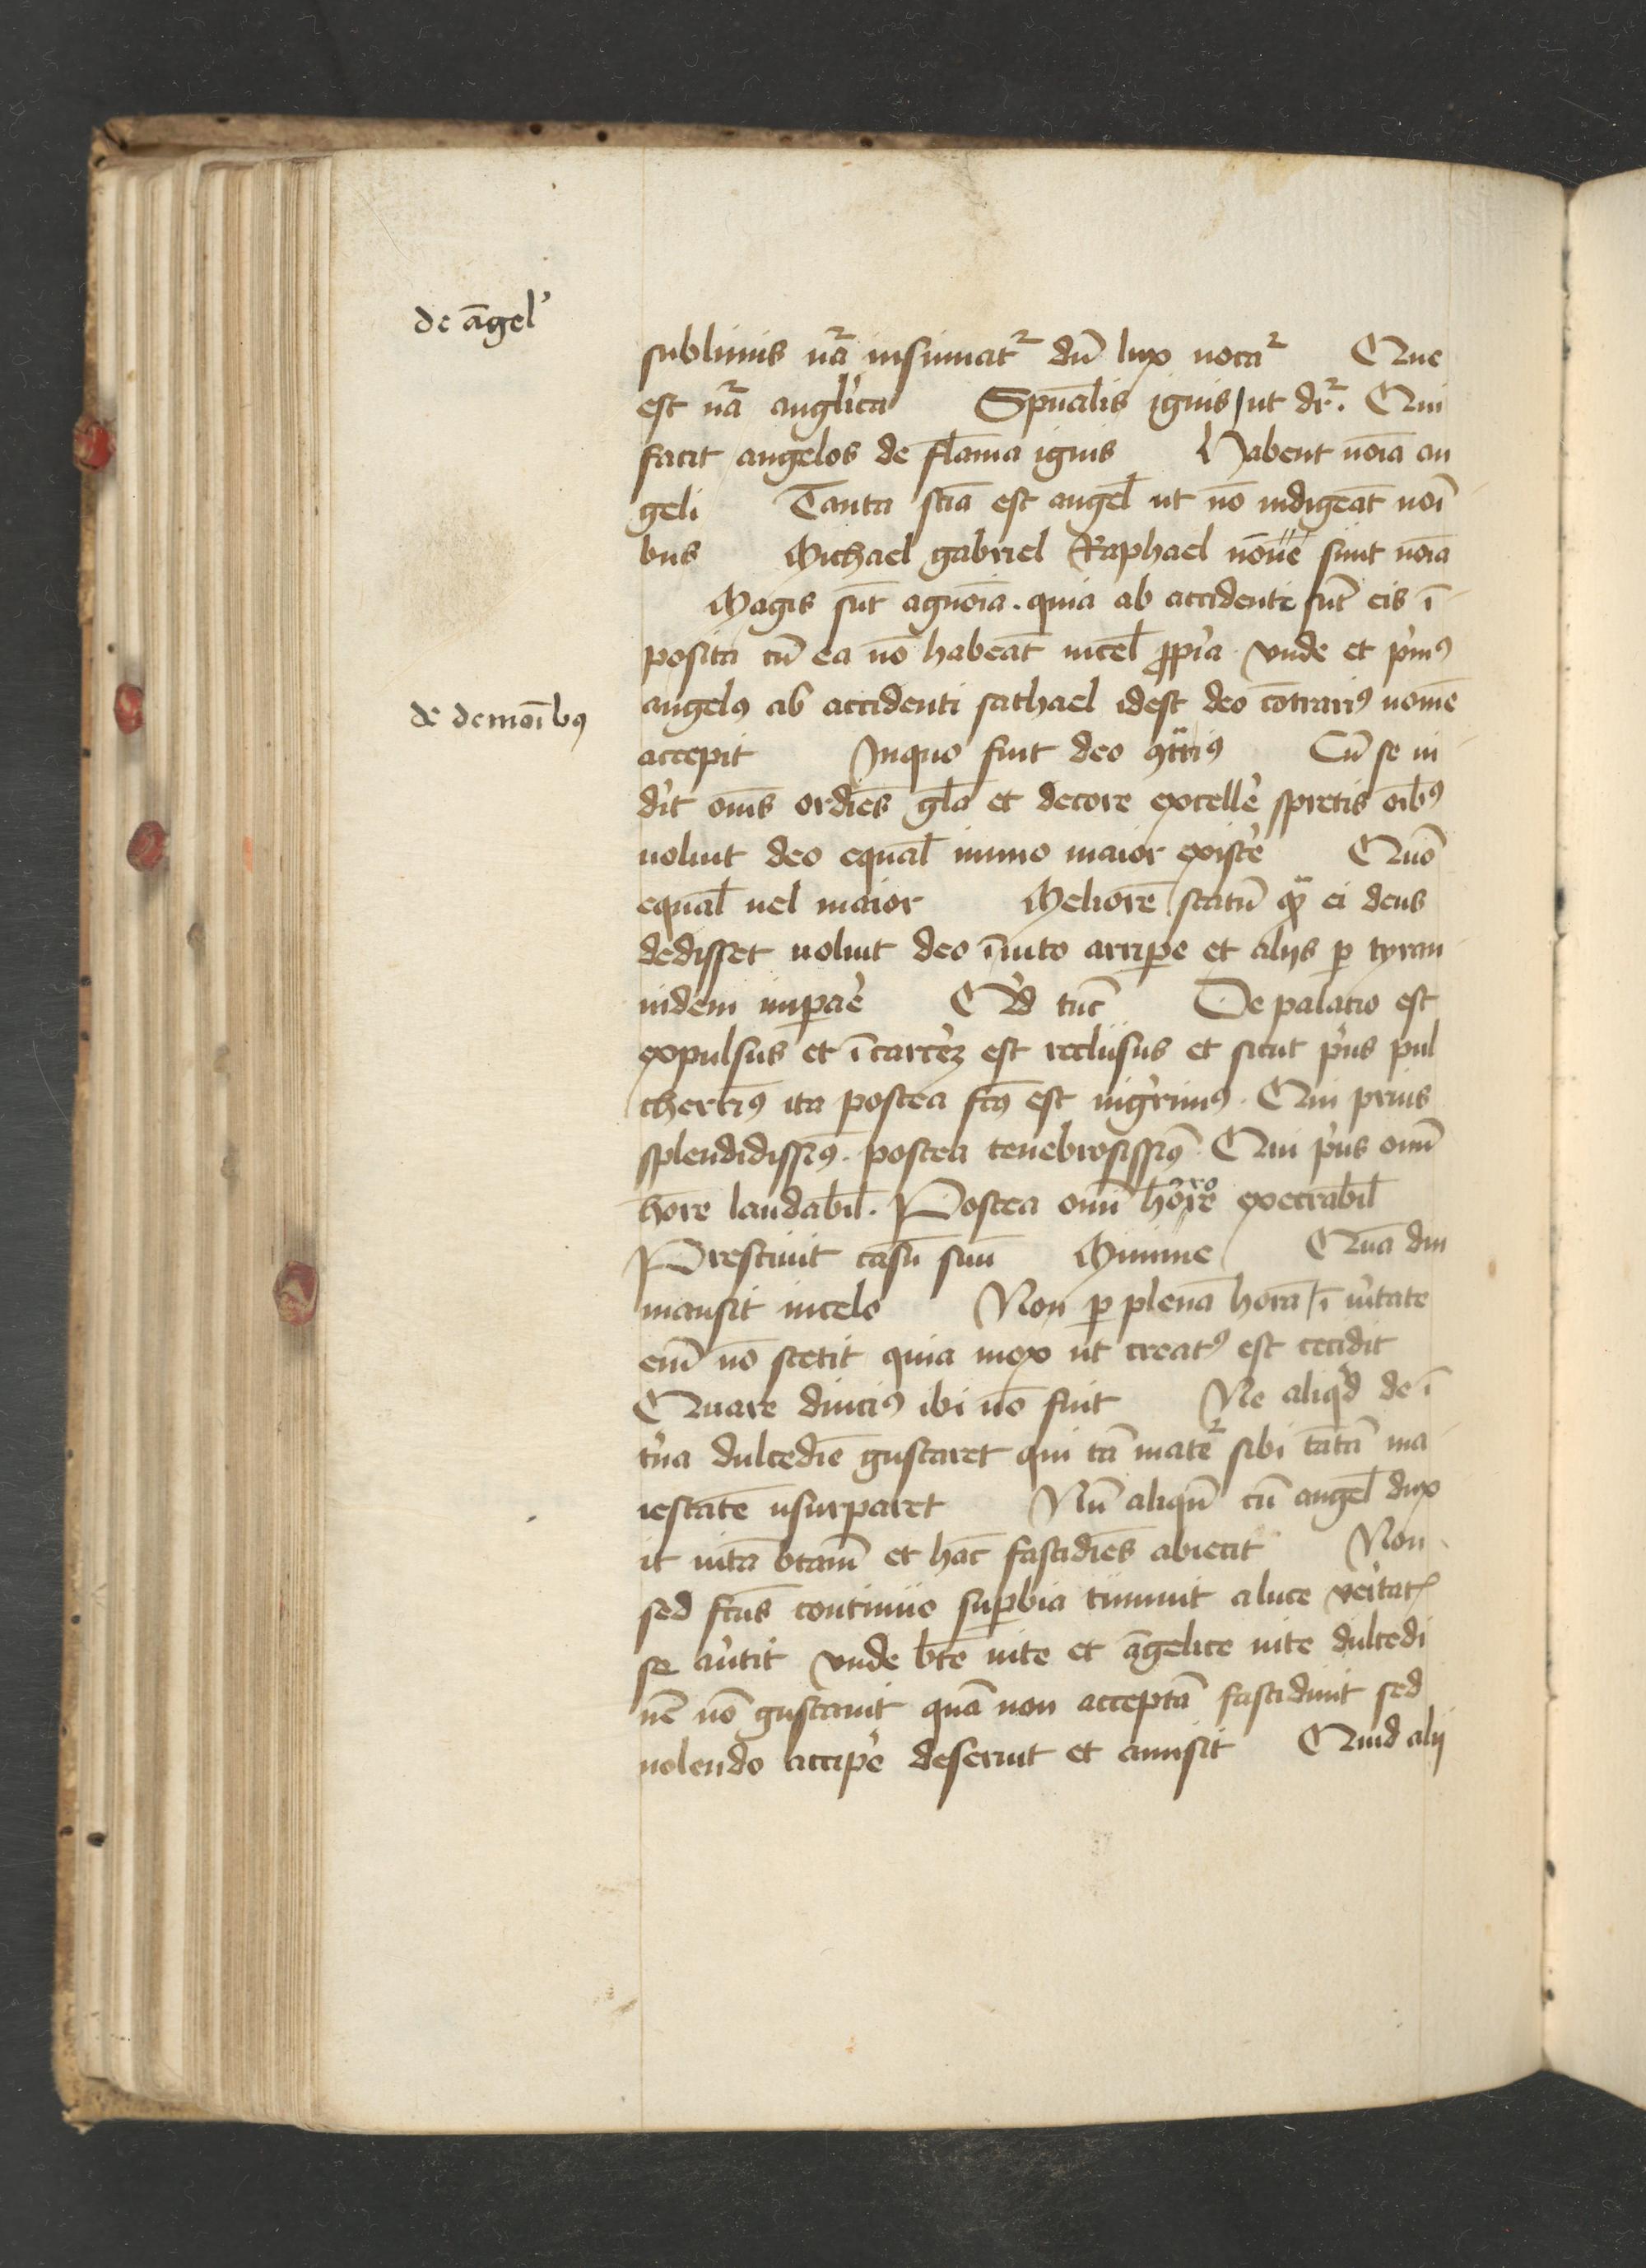 de āgel'
sublimis nr̄a insinuat² dū lux uocar² Que
est nr̄a angl'ica Spūalis ignis ut dr̄. Qui
facit angelos de flāma ignis Habent noīa an
geli Tanta scīa est angel̄ ut nō indigeāt noī
bus Michael gabriel Raphael nōne sunt noīa
Magis sūt agnoīa. quia ab accidenti sūt eis ī
posita cū ea nō habeāt incel̄ ꝓpīa vnde et p'mꝰ
angelꝰ ab accidenti sathael idest deo cōtrariꝰ nomē
de demoībꝰ
accepit Inquo fuit deo ꝯtriꝰ Cū se ui
dit oms ordīes gl̄a et decore excelle' spretis oībꝰ
uoluit deo equal̄ immo maior existe' Quō
equal̄ uel maior Meliorē statū qͣ ei deus
dedisset uoluit deo īuito arripe et alijs ꝑ tyran
nidem impāe' Qd' tūc De palatio est
expulsus et ī carcerꝫ est reclusus et sicut p'us pul
cherrīꝰ ita postea fcꝰ est nigrīmꝰ. Qui prius
splendidissīꝰ. postea tenebrosissīꝰ. Qui p'us omī
hōre laudabil̄. Postea omī hōrore execrabil̄
Presciuit casū suū Minime Quādiu
mansit incelo Non ꝑ plenā horā ī u'itate
enī nō stetit quia mox ut creatꝰ est cecidit
Quare diuciꝰ ibi nō fuit Ne aliqd' de ī
t'na dulcedīe gustaret qui tā mate² sibi tātā ma
iestatē usurparet Nū aliqn̄ cū angel̄ dux
it uitā btām et hāc fastidiēs abiecit Non
sed stās continuo suꝑbia tumuit a luce veritatꝭ
se au'tit vnde bt̄e uite et āgelice uite dulcedi
nē nō gustauit quā non acceptā fastidiuit sed
nolendo accipe' deseruit et amisit Quid alij